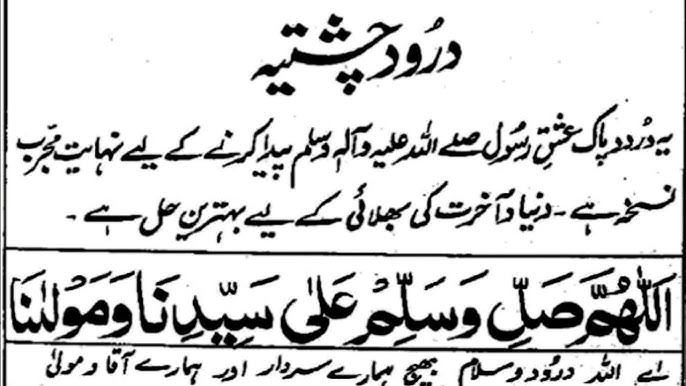 درُود چشتیہ
یہ درُود پاک عشقِ رسُول صلے اللہ علیہ وآلہٖ وسلم پیدا کرنے کے لیے نہایت مجرب
نسخہ ہے۔ دنیا و آخرت کی بھلائی کے لیے بہترین حل ہے۔
اَللّٰهُمَّ صَلِّ وَسَلِّمْ عَلٰى سَيِّدِنَا وَمَوْلٰنَا
اے اللہ درُود و سلام بھیج ہمارے سردار اور ہمارے آقا و مولیٰ